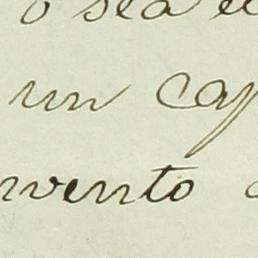 o sea e
un cap
nvento